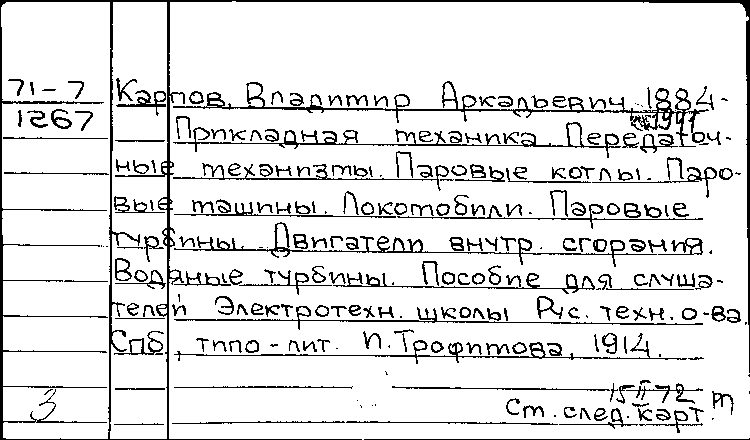 71-7
1267
Карпов, Владимир Аркадьевич, 1884-
1941
Прикладная механика. Передаточ-
ные механизмы. Паровые котлы. Паро-
вые машины. Локомобили. Паровые
турбины. Двигатели внутр. сгорания.
Водяные турбины. Пособие для слуша-
телей Электротехн. школы Рус. техн. о-ва.
Спб., типо-лит. И. Трофимова, 1914.
15 II 72
См. след. карт.
3